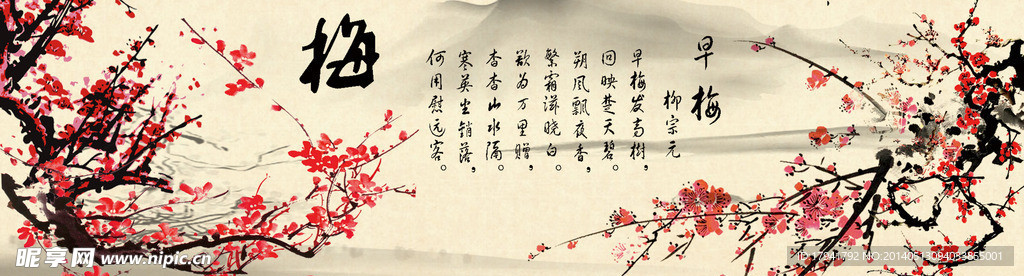 梅
早梅
柳宗元
早梅发高樹，
回映楚天碧。
朔风飘夜香，
繁霜滋晓白。
欲为万里赠，
杳杳山水隔。
寒英坐销落，
何用慰远客。
昵享网 www.nipic.cn
ID:17941792 NO:20140513094053855001